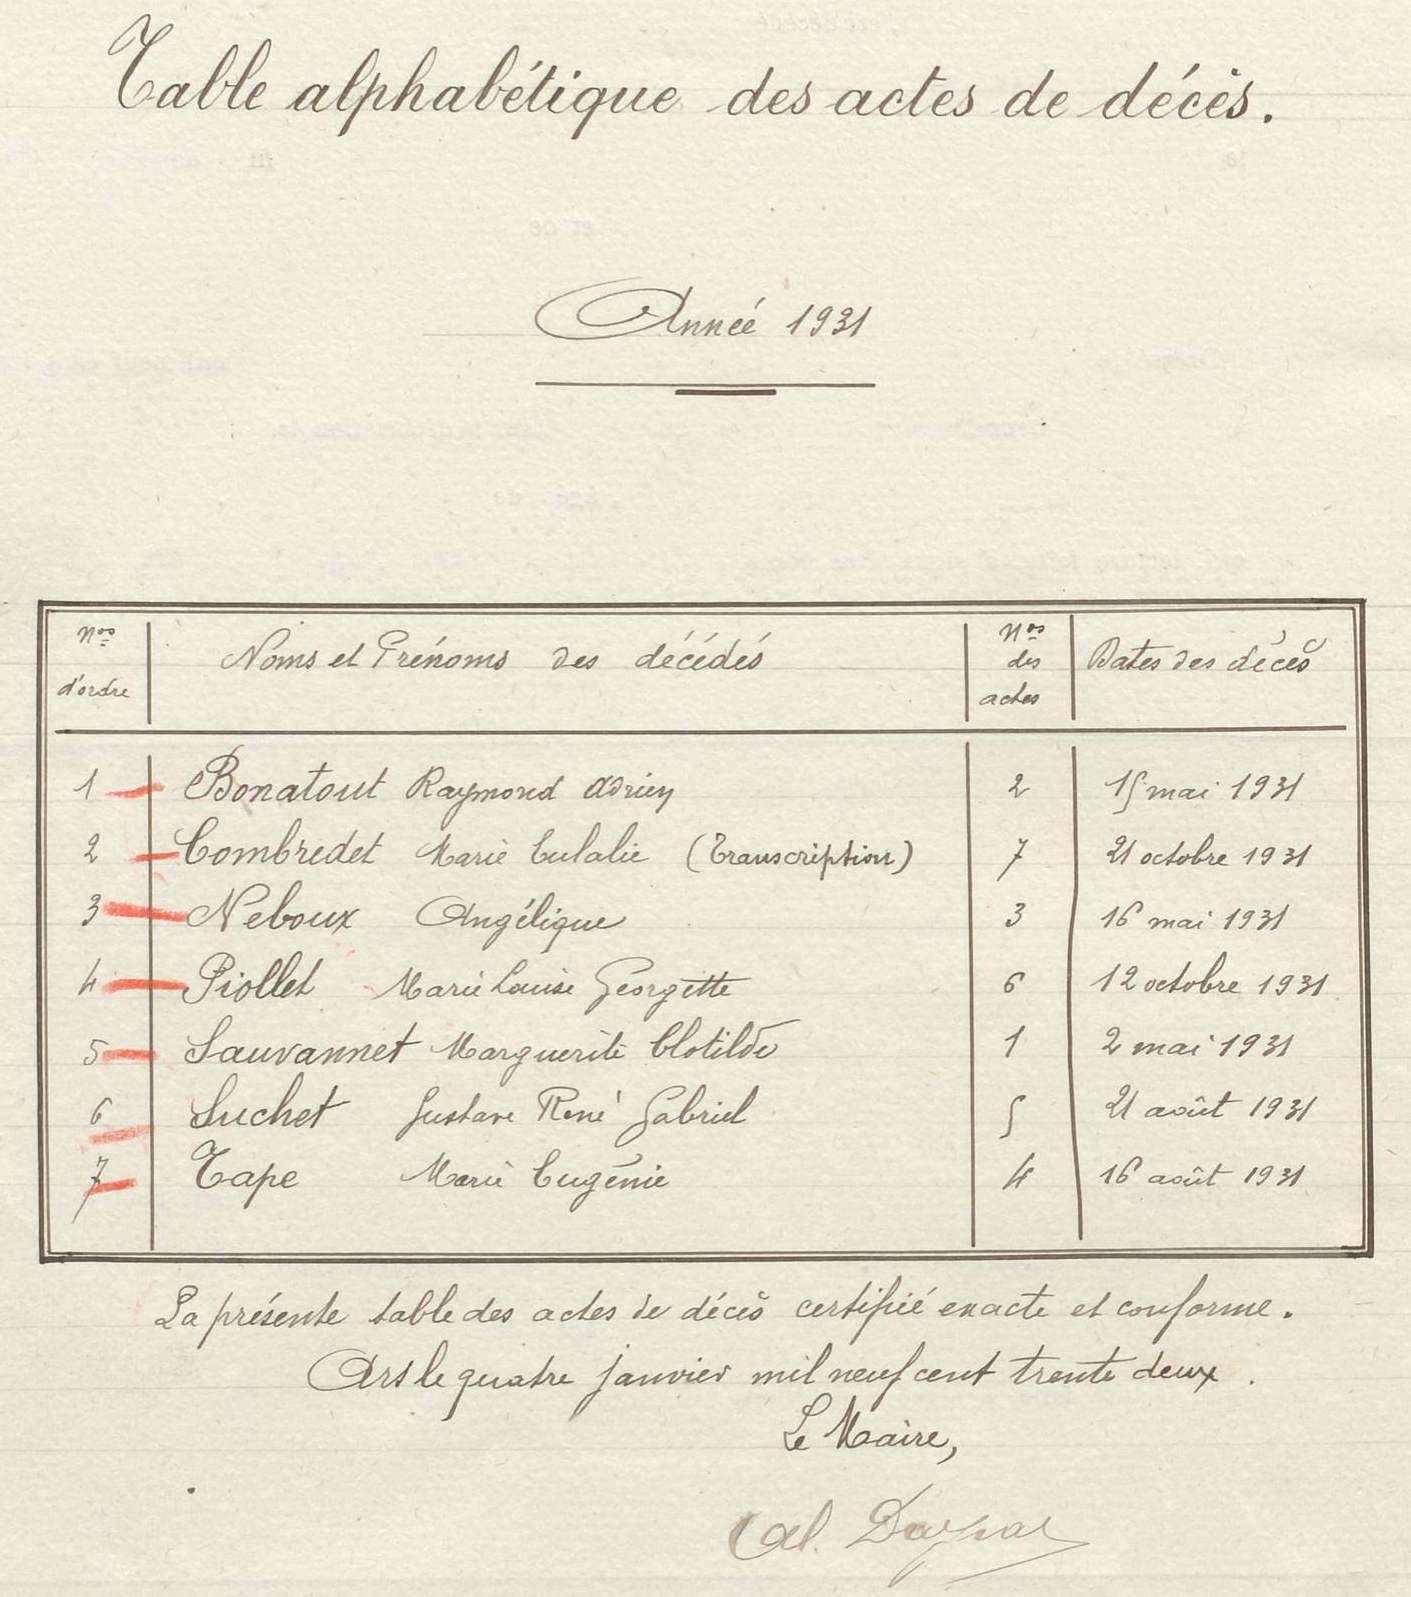 Table alphabétique des actes de décès.
Année 1931
Nos d'ordre Noms et Prénoms des décédés Nos des actes Dates des décès
1 Bonatout Raymond Adrien 2 15 mai 1931
2 Combredet Marie Eulalie (Transcription) 7 21 octobre 1931
3 Neboux Angélique 3 16 mai 1931
4 Piollet Marie Louise Georgette 6 12 octobre 1931
5 Sauvannet Marguerite Clotilde 1 2 mai 1931
6 Suchet Gustave René Gabriel 5 21 août 1931
7 Tape Marie Eugénie 4 16 août 1931
La présente table des actes de décès certifié exacte et conforme.
Ars le quatre janvier mil neuf cent trente deux.
Le Maire,